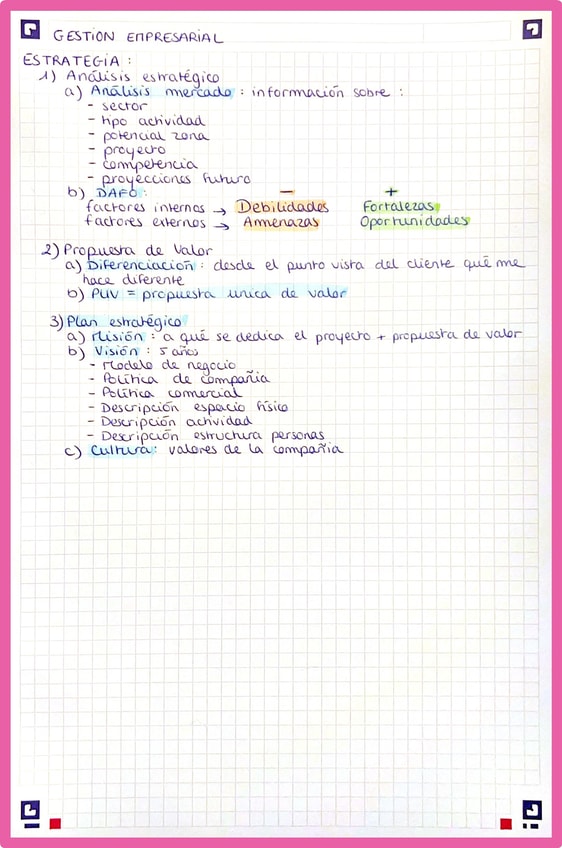 GESTIÓN EMPRESARIAL
ESTRATEGIA :
1) Análisis estratégico
a) Análisis mercado : información sobre :
- sector
- tipo actividad
- potencial zona
- proyecto
- competencia
- proyecciones futuro
b) DAFO : - +
factores internos → Debilidades Fortalezas
factores externos → Amenazas Oportunidades
2) Propuesta de Valor
a) Diferenciación : desde el punto vista del cliente qué me
hace diferente
b) PUV = propuesta unica de valor
3) Plan estratégico
a) Misión : a qué se dedica el proyecto + propuesta de valor
b) Visión : 5 años
- Modelo de negocio
- Política de compañia
- Política comercial
- Descripción espacio físico
- Descripción actividad
- Descripción estructura personas
c) Cultura: valores de la compañia